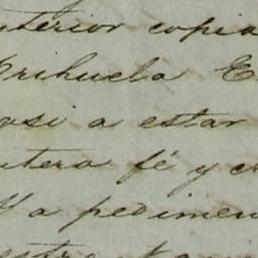 nterior copia
Orihuela E
osi a estar
ntera fé y c
Y a pedimen